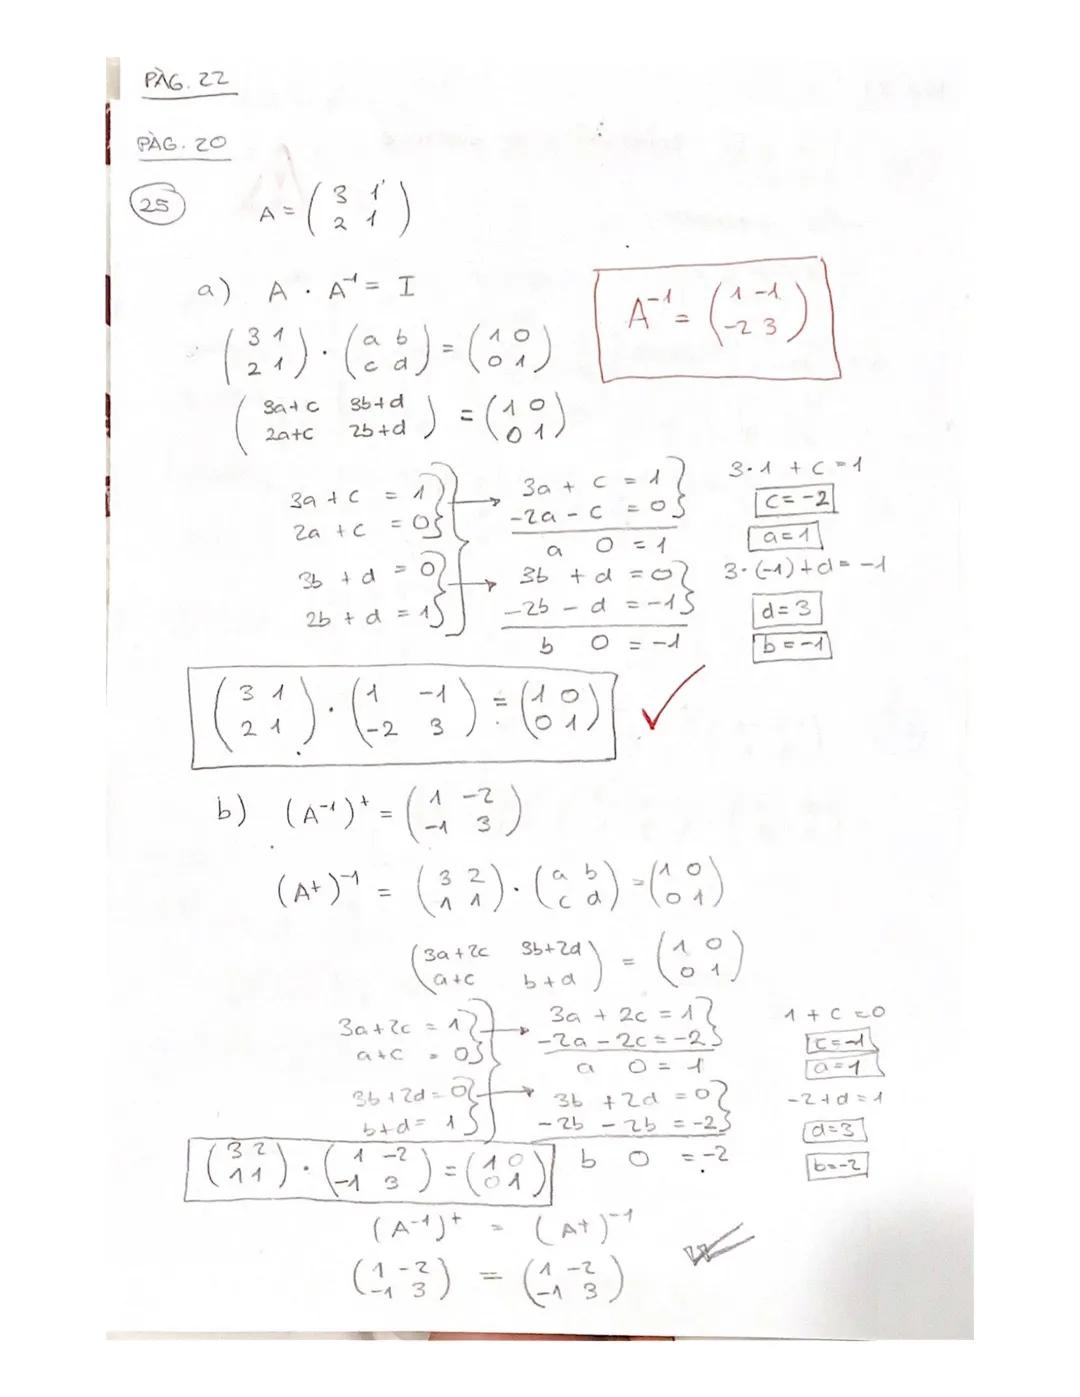 PÀG. 22
PÀG. 20
25
A = ( 3 1 ; 2 1 )
a) A · A⁻¹ = I
A⁻¹ = ( 1 -1 ; -2 3 )
( 3 1 ; 2 1 ) · ( a b ; c d ) = ( 1 0 ; 0 1 )
( 3a+c 3b+d ; 2a+c 2b+d ) = ( 1 0 ; 0 1 )
3a + c = 1
2a + c = 0
3b + d = 0
2b + d = 1
3a + c = 1
-2a - c = 0
a 0 = 1
3b + d = 0
-2b - d = -1
b 0 = -1
3·1 + c = 1
c = -2
a = 1
3·(-1) + d = -1
d = 3
b = -1
( 3 1 ; 2 1 ) · ( 1 -1 ; -2 3 ) = ( 1 0 ; 0 1 ) ✓
b) (A⁻¹)ᵗ = ( 1 -2 ; -1 3 )
(Aᵗ)⁻¹ = ( 3 2 ; 1 1 ) · ( a b ; c d ) = ( 1 0 ; 0 1 )
( 3a+2c 3b+2d ; a+c b+d ) = ( 1 0 ; 0 1 )
3a+2c = 1
a+c = 0
3b+2d = 0
b+d = 1
3a + 2c = 1
-2a - 2c = -2
a 0 = 1
3b + 2d = 0
-2b - 2b = -2
b 0 = -2
1 + c = 0
c = -1
a = 1
-2+d = 1
d = 3
b = -2
( 3 2 ; 1 1 ) · ( 1 -2 ; -1 3 ) = ( 1 0 ; 0 1 )
(A⁻¹)ᵗ = (Aᵗ)⁻¹
( 1 -2 ; -1 3 ) = ( 1 -2 ; -1 3 )